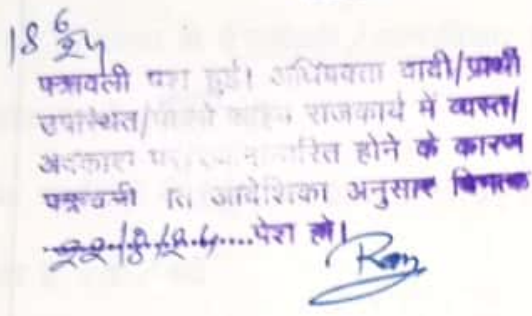 18 6/24
पत्रावली पेश हुई। अधिवक्ता वादी/प्रार्थी
उपस्थित/ राजकार्य में व्यस्त/
अवकाश पर होने के कारण
पत्रावली आदेशिका अनुसार दिनांक
22/8/24....पेश हो।